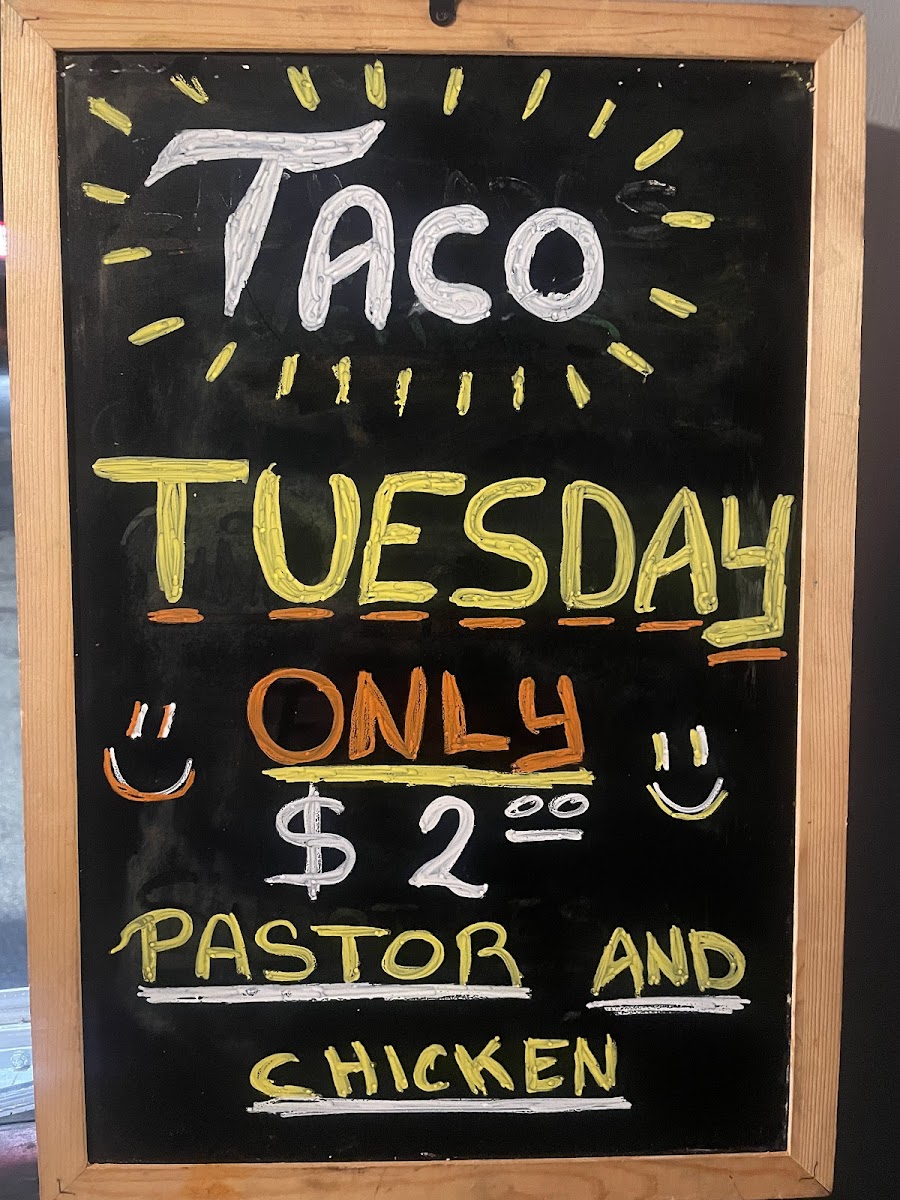 TACO
TUESDAY
ONLY
$ 2 00
PASTOR AND
CHICKEN